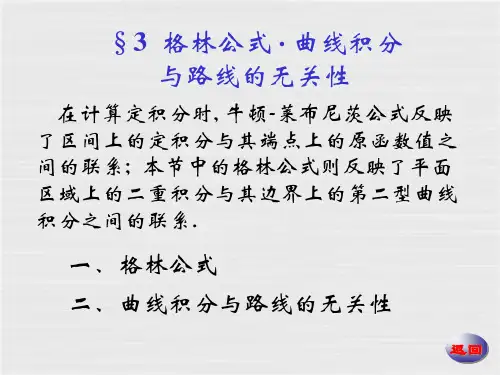 §3 格林公式·曲线积分
与路线的无关性
在计算定积分时, 牛顿-莱布尼茨公式反映
了区间上的定积分与其端点上的原函数值之
间的联系; 本节中的格林公式则反映了平面
区域上的二重积分与其边界上的第二型曲线
积分之间的联系.
一、格林公式
二、曲线积分与路线的无关性
返回